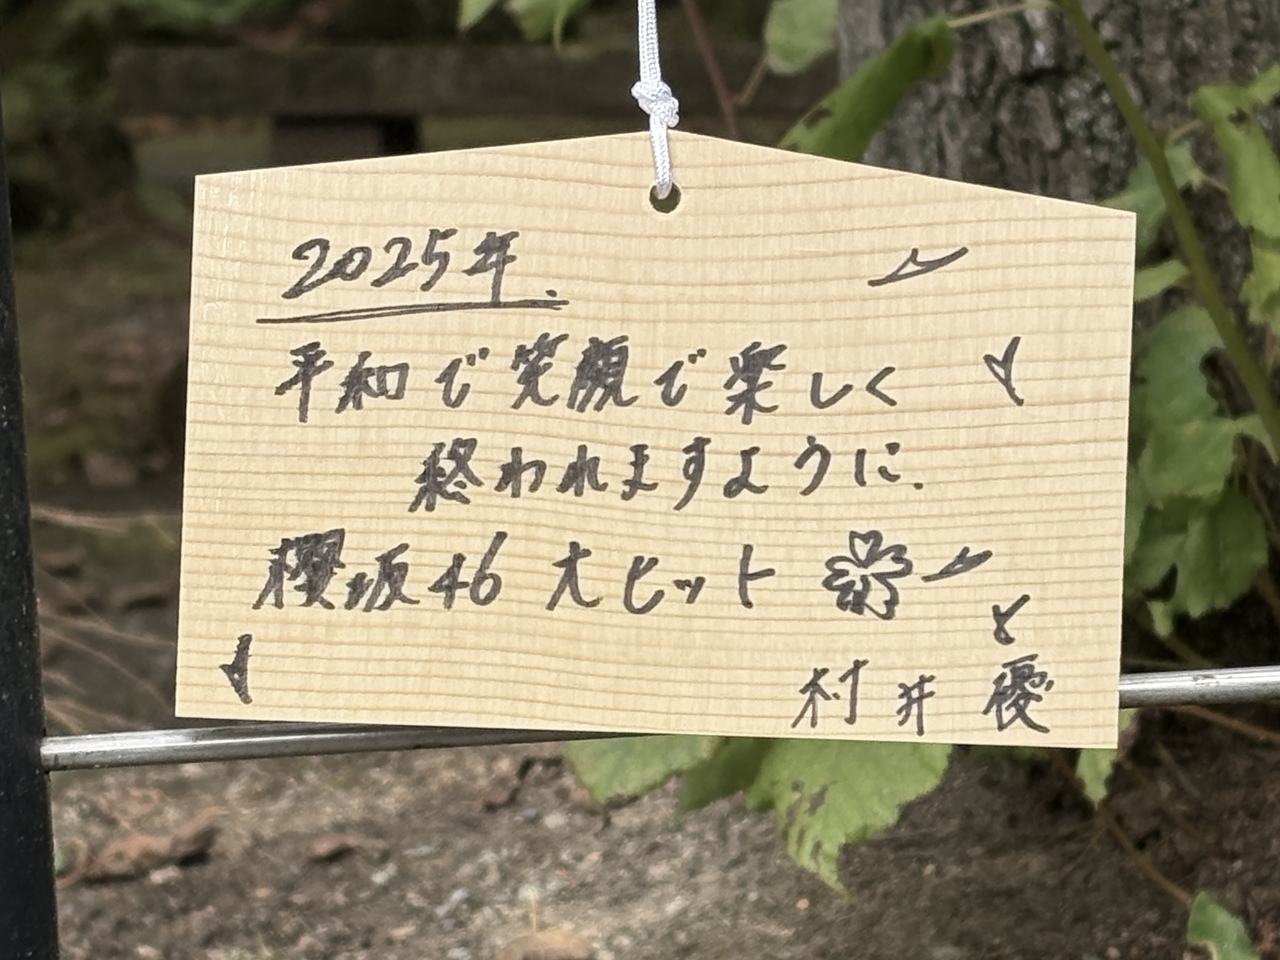 2025年.
平和で笑顔で楽しく
終われますように.
櫻坂46 大ヒット
村井 優